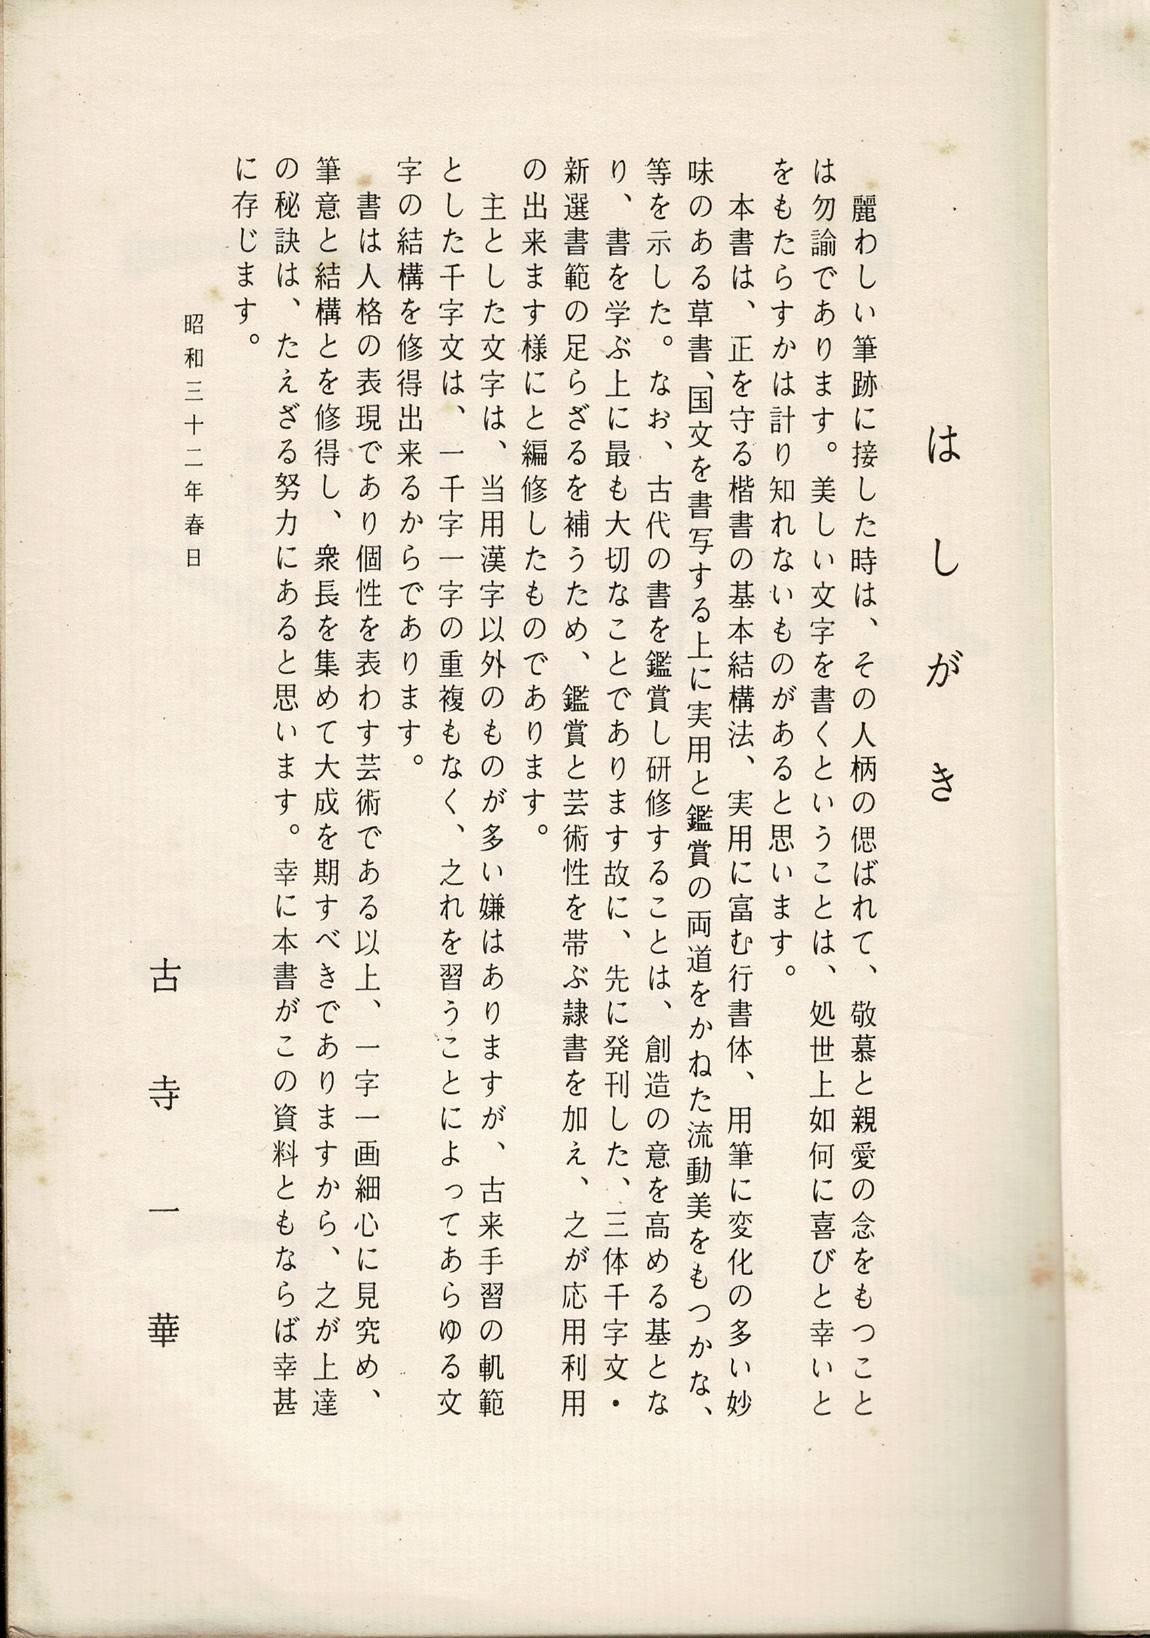 はしがき
麗わしい筆跡に接した時は、その人柄の偲ばれて、敬慕と親愛の念をもつこと
は勿論であります。美しい文字を書くということは、処世上如何に喜びと幸いと
をもたらすかは計り知れないものがあると思います。
本書は、正を守る楷書の基本結構法、実用に富む行書体、用筆に変化の多い妙
味のある草書、国文を書写する上に実用と鑑賞の両道をかねた流動美をもつかな、
等を示した。なお、古代の書を鑑賞し研修することは、創造の意を高める基とな
り、書を学ぶ上に最も大切なことであります故に、先に発刊した、三体千字文・
新選書範の足らざるを補うため、鑑賞と芸術性を帯ぶ隷書を加え、之が応用利用
の出来ます様にと編修したものであります。
主とした文字は、当用漢字以外のものが多い嫌はありますが、古来手習の軌範
とした千字文は、一千字一字の重複もなく、之れを習うことによってあらゆる文
字の結構を修得出来るからであります。
書は人格の表現であり個性を表わす芸術である以上、一字一画細心に見究め、
筆意と結構とを修得し、衆長を集めて大成を期すべきでありますから、之が上達
の秘訣は、たえざる努力にあると思います。幸に本書がこの資料ともならば幸甚
に存じます。
昭和三十二年春日
古寺一華